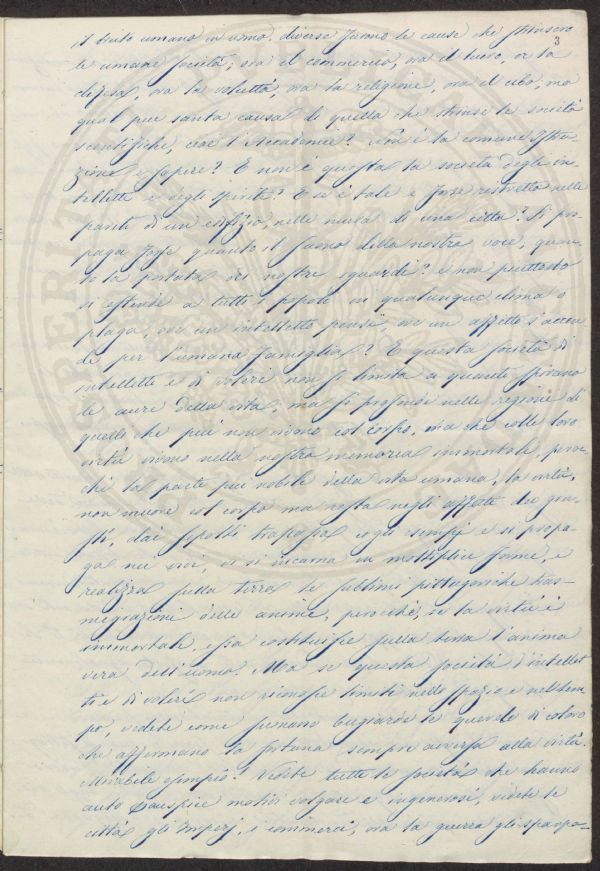 3
umano in uomo. diverse furono le cause che strinsero
le umane società; ora il commercio, ora il lucro, or la
difesa, ora la voluttà, ora la religione, ora il cibo; ma
qual più santa causa di quella che strinse le società
scientifiche, cioè l'Accademie? Non è la comune Istru-
zione e sapere? E non è questa la società degl'in-
telletti e degli spiriti? E si è tale e forse ristretta nelle
pareti di un edifizio, nelle mura di una città? Si pro-
paga forse quanto il suono della nostra voce, quan-
to la portata dei nostri sguardi? e non piuttosto
si estende a tutti i popoli in qualunque clima o
plaga, ove un intelletto pensi, ove un affetto s'accen-
da per l'umana famiglia? E questa società di
intelletti e di voleri non si limita a quanti spirano
le aure della vita, ma si profonde nelle regioni di
quelli che più non vivono col corpo, ma che colle loro
virtù vivono nella nostra memoria immortale, peroc-
chè la parte più nobile della vita umana, la virtù,
non muore col corpo ma resta negli affetti dei
dai sepolcri trapassa cogli esempj e si propa-
ga nei vivi, vi si incarna in molteplici forme, e
realizza sulla terra le sublimi pittagoriche tras-
migrazioni delle anime, perocchè, se la virtù è
immortale, essa costituisce sulla terra l'anima
vera dell'uomo. Ma se questa società d'intellet-
ti e di voleri non conosce limiti nello spazio e nel tem-
po, vedete come suonano bugiarde le querele di coloro
che affermano la fortuna sempre avversa alla virtù.
Mirabile esempio! Vedete tutte le società che hanno
avuto causa più motivi volgari e ingenerosi, vedete le
città gli Imperj, i commerci, ora la guerra gli sparpa-